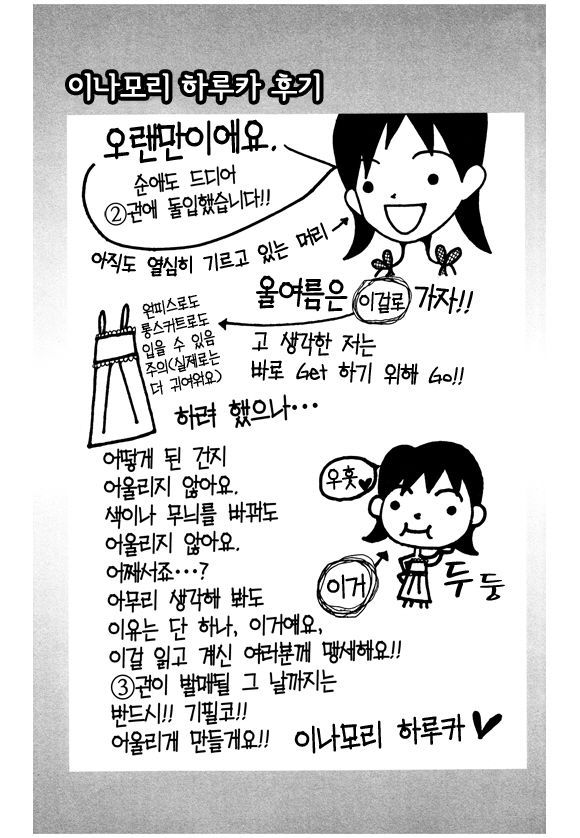 이나모리 하루카 후기
오랜만이에요.
순애도 드디어
②권에 돌입했습니다!!
아직도 열심히 기르고 있는 머리
올여름은 이걸로 가자!!
원피스로도
롱스커트로도
입을 수 있음
주의(실제로는
더 귀여워요)
고 생각한 저는
바로 Get 하기 위해 Go!!
하려 했으나…
어떻게 된 건지
어울리지 않아요.
색이나 무늬를 바꿔도
어울리지 않아요.
어째서죠…?
아무리 생각해 봐도
이유는 단 하나, 이거예요,
우훗♥
이거
두둥
이걸 읽고 계신 여러분께 맹세해요!!
③권이 발매될 그 날까지는
반드시!! 기필코!!
어울리게 만들게요!!
이나모리 하루카 ♥